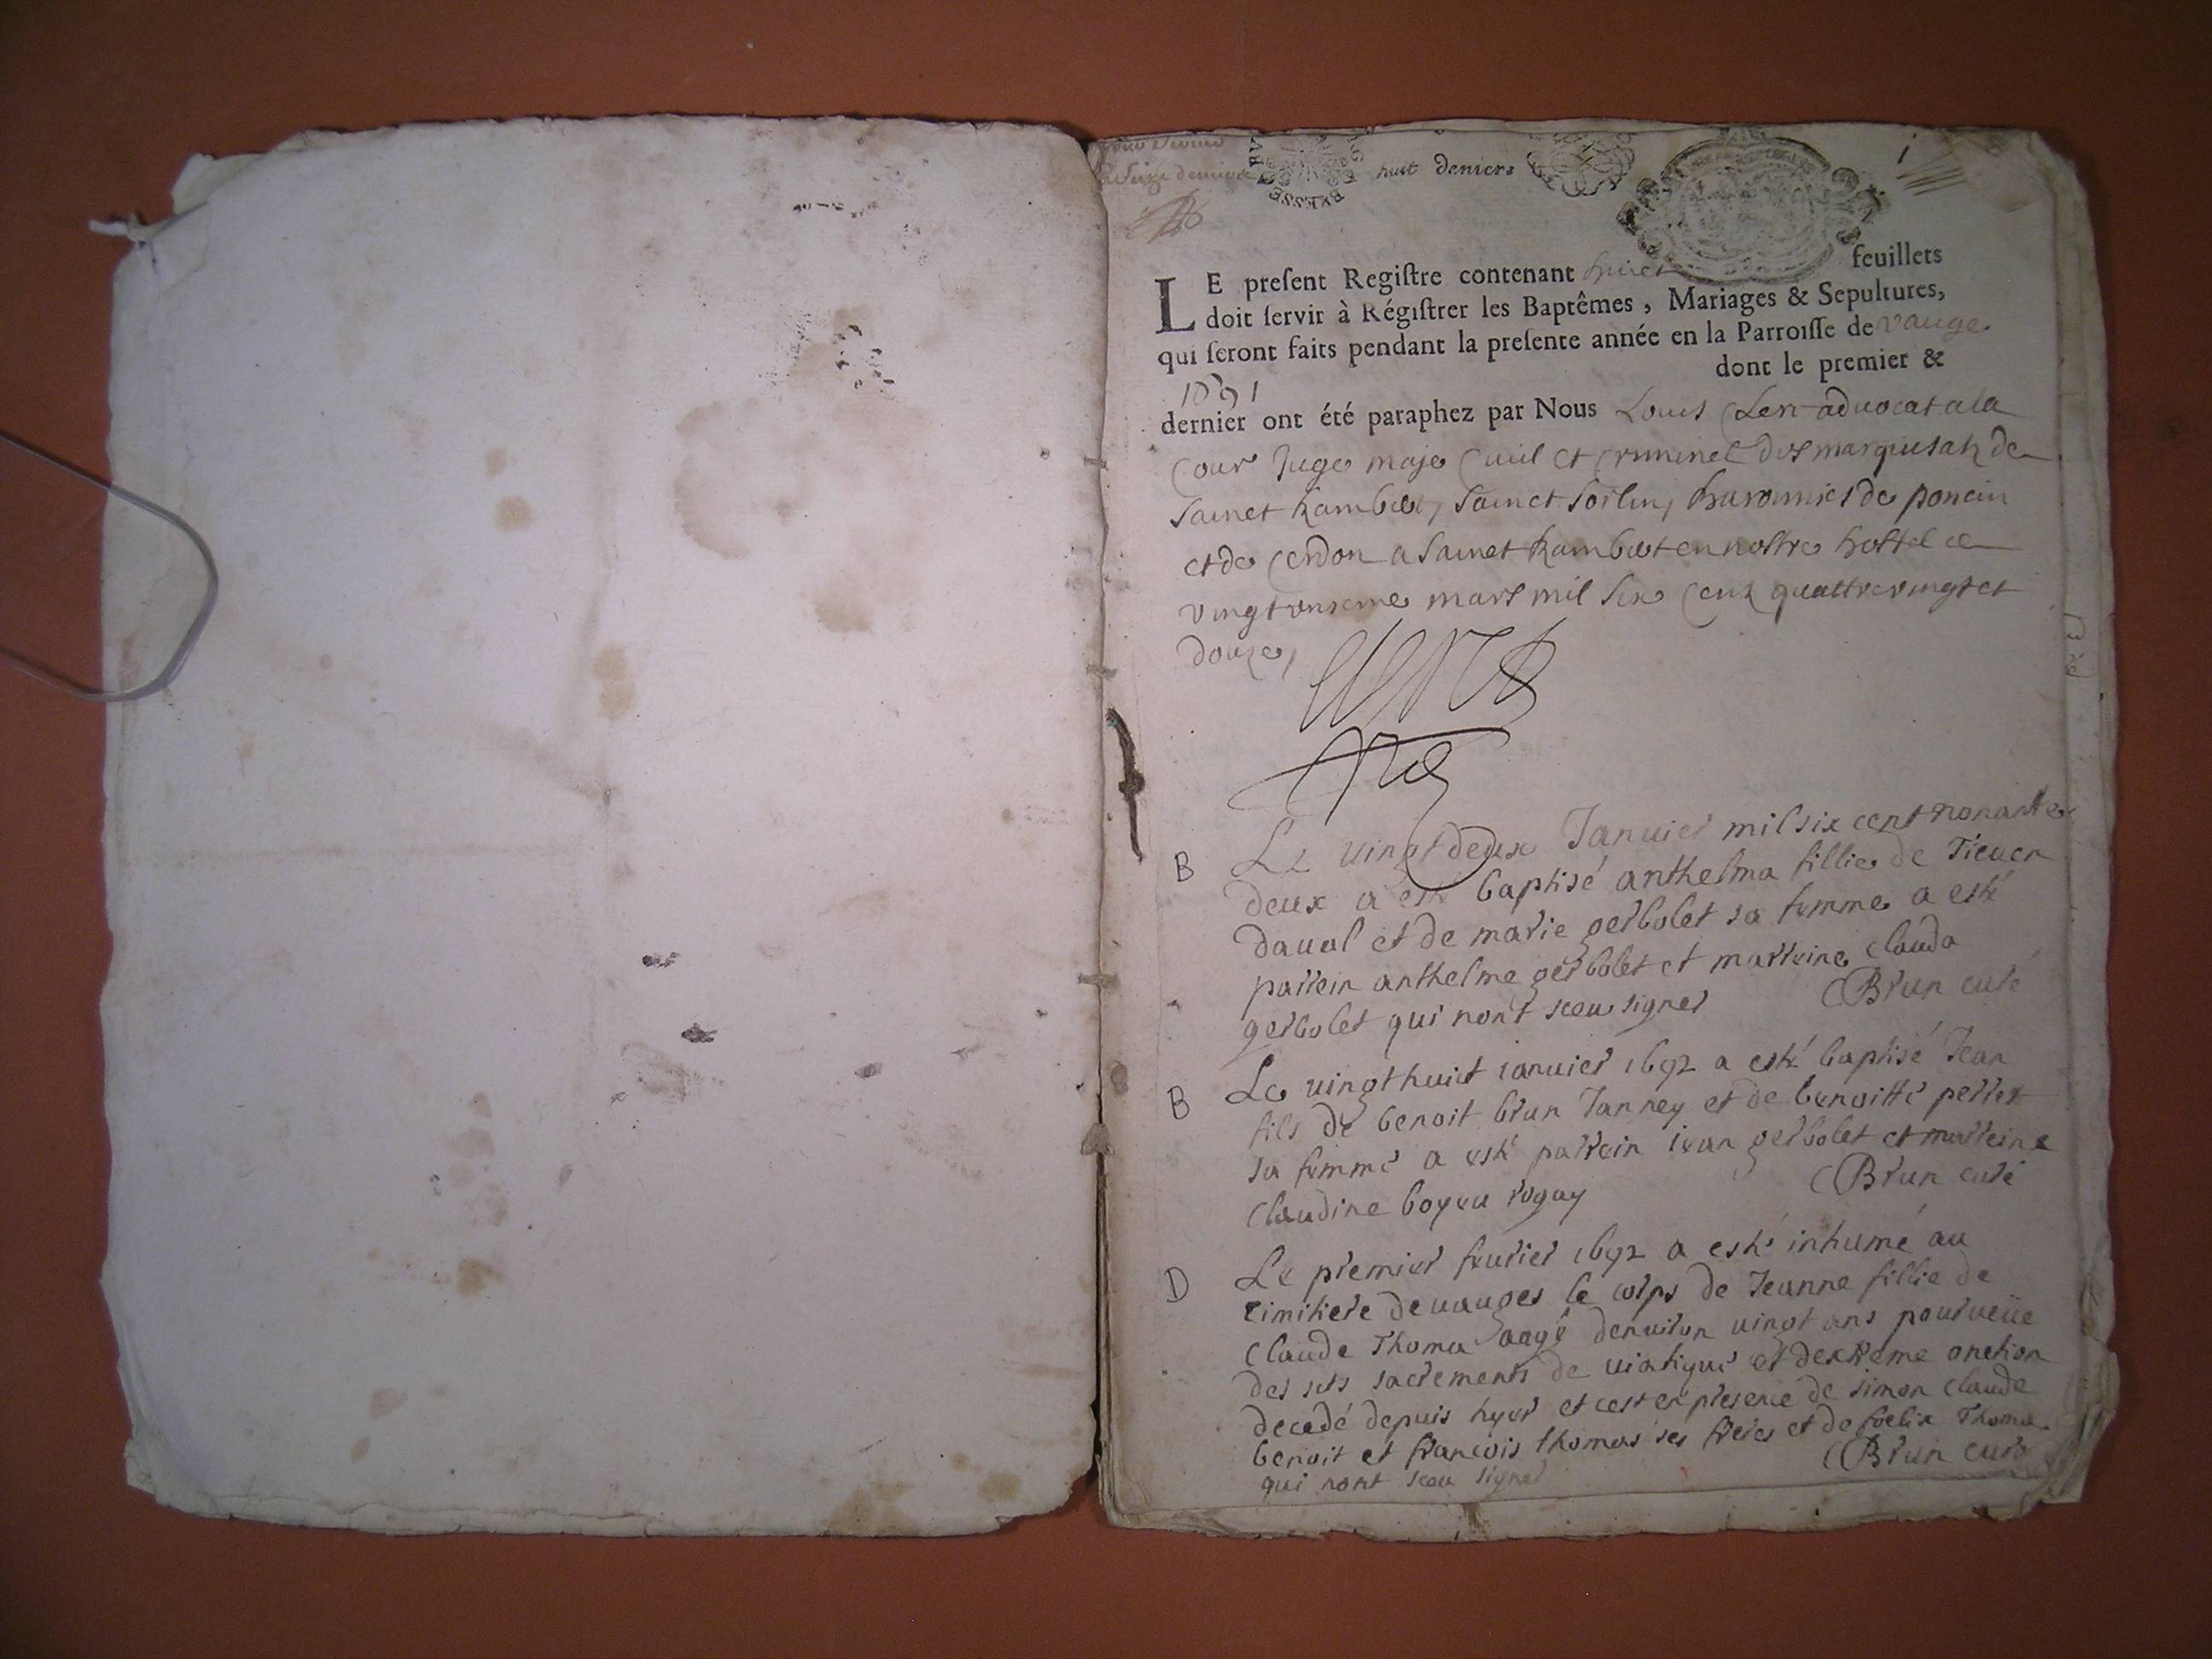 huit deniers
LE present Registre contenant huict feuillets
doit servir à Régistrer les Baptêmes, Mariages & Sepultures,
qui seront faits pendant la presente année en la Parroisse de vauge
dont le premier &
1691
dernier ont été paraphez par Nous Louis aduocat a la
Cour Juge maje Ciuil et Criminel des marquisatz de
Sainct Rambert, Sainct Sorlin, baronnies de poncin
et de Cerdon a Sainct Rambert en nostre hostel ce
vingt onzieme mars mil six centz quattre vingt et
douze,
B Le vingt deux Januier mil six cent nonante
deux a esté baptisé anthelma fillie de
daual et de marie gerbolet sa femme a esté
parrein anthelme gerbolet et marreine Clauda
gerbolet qui n'ont sceu signer Brun curé
B Le uingt huict ianuier 1692 a esté baptisé Jean
fils de benoit brun Janney et de benoitte perret
sa femme a esté parrein iean gerbolet et marreine
Claudine boyeu Brun curé
D Le premier feurier 1692 a esté inhumé au
cimitiere de uauges le corps de Jeanne fillie de
Claude Thoma aagé denuiron uingt ans pourueüe
des sts sacrements de uiatique et dextreme onction
decedé depuis hyer et cest en presence de simon claude
benoit et francois thomas ses freres et de foelix Thoma
qui nont sceu signer Brun curé